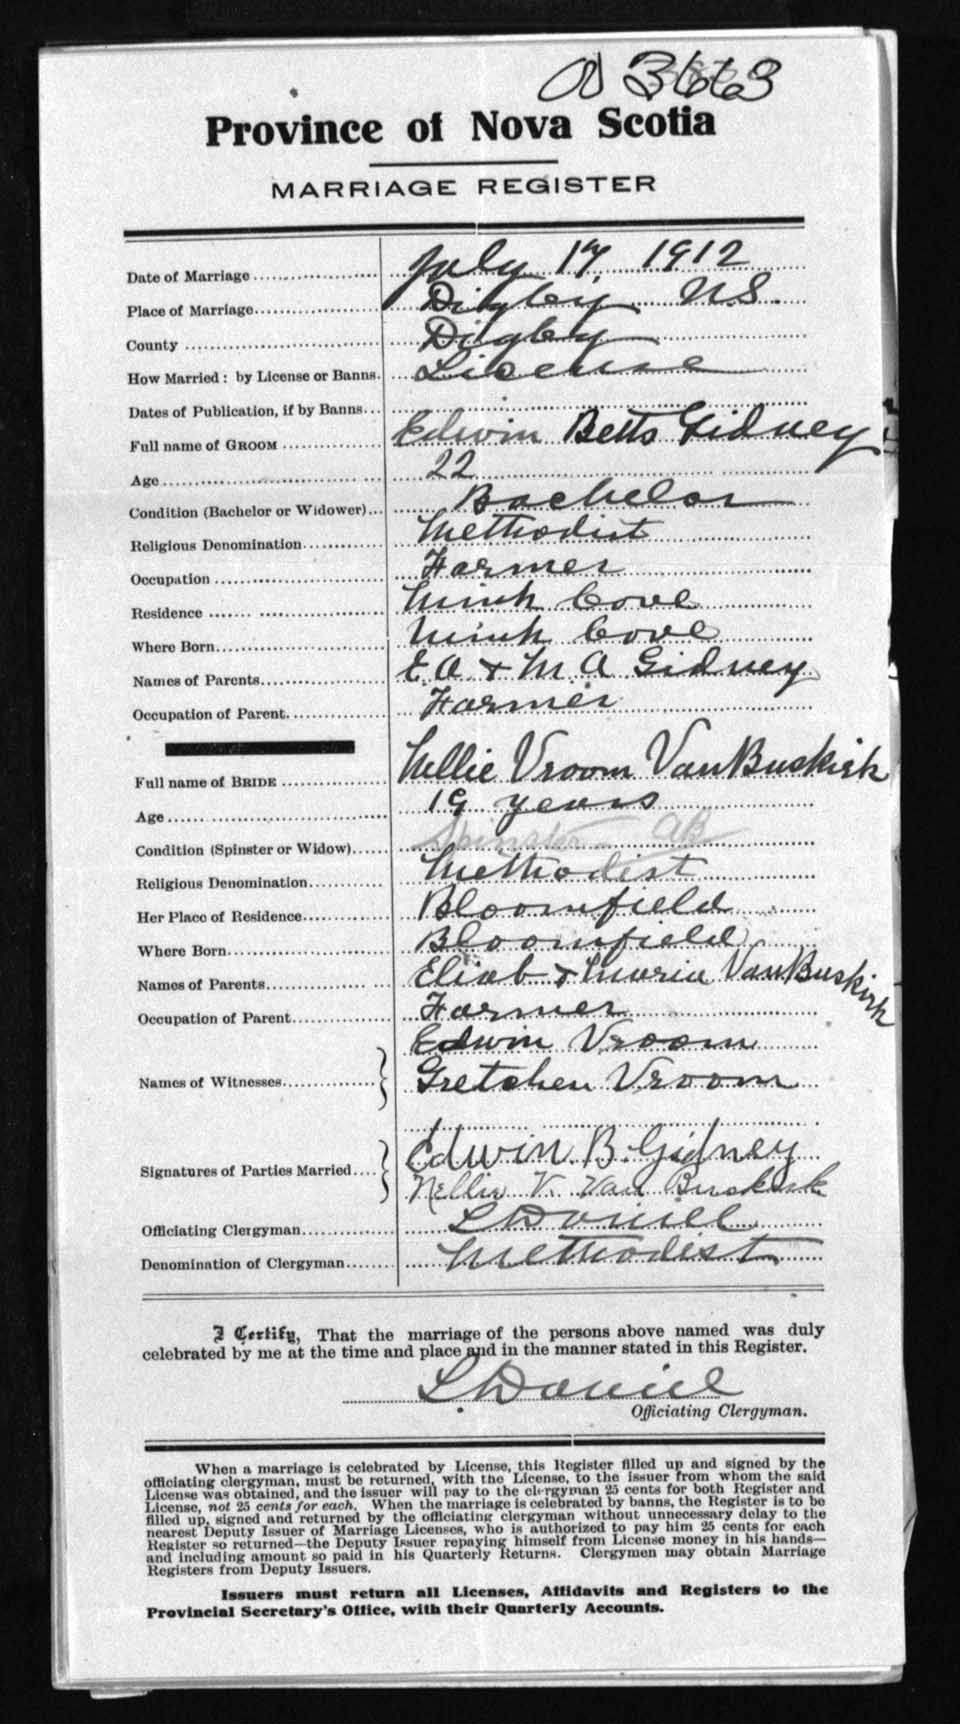 3663
Province of Nova Scotia
MARRIAGE REGISTER
Date of Marriage July 17, 1912
Place of Marriage Digby N.S.
County Digby
How Married: by License or Banns. License
Dates of Publication, if by Banns
Full name of GROOM Edwin Betts Gidney
Age 22
Condition (Bachelor or Widower) Bachelor
Religious Denomination Methodist
Occupation Farmer
Residence Mink Cove
Where Born Mink Cove
Names of Parents E. A + M A Gidney
Occupation of Parent Farmer
Full name of BRIDE Nellie Vroom VanBuskirk
Age 19 years
Condition (Spinster or Widow) Spinster AB
Religious Denomination Methodist
Her Place of Residence Bloomfield
Where Born Bloomfield
Names of Parents Eliab + Maria VanBuskirk
Occupation of Parent Farmer
Names of Witnesses Edwin Vroom
Gretchen Vroom
Signatures of Parties Married Edwin B. Gidney
Nellie V. Van Buskirk
Officiating Clergyman L Daniel
Denomination of Clergyman Methodist
I Certify, That the marriage of the persons above named was duly
celebrated by me at the time and place and in the manner stated in this Register.
L. Daniel
Officiating Clergyman.
When a marriage is celebrated by License, this Register filled up and signed by the
officiating clergyman, must be returned, with the License, to the issuer from whom the said
License was obtained, and the issuer will pay to the clergyman 25 cents for both Register and
License, not 25 cents for each. When the marriage is celebrated by banns, the Register is to be
filled up, signed and returned by the officiating clergyman without unnecessary delay to the
nearest Deputy Issuer of Marriage Licenses, who is authorized to pay him 25 cents for each
Register so returned—the Deputy Issuer repaying himself from License money in his hands—
and including amount so paid in his Quarterly Returns. Clergymen may obtain Marriage
Registers from Deputy Issuers.
Issuers must return all Licenses, Affidavits and Registers to the
Provincial Secretary's Office, with their Quarterly Accounts.